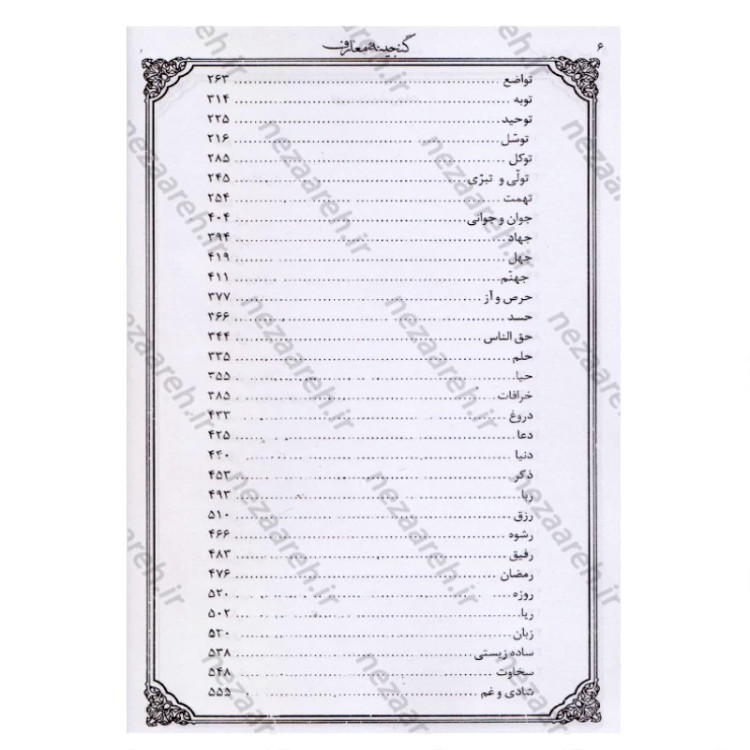 ۶
گنجینه معارف
تواضع ........ ۲۶۳
توبه ........ ۳۱۴
توحید ........ ۲۲۵
توسّل ........ ۲۱۶
توکل ........ ۲۸۵
تولّی و تبرّی ........ ۲۴۵
تهمت ........ ۲۵۴
جوان و جوانی ........ ۴۰۴
جهاد ........ ۳۹۴
جهل ........ ۴۱۹
جهنّم ........ ۴۱۱
حرص و آز ........ ۳۷۷
حسد ........ ۳۶۶
حق الناس ........ ۳۴۴
حلم ........ ۳۳۵
حیا ........ ۳۵۵
خرافات ........ ۳۸۵
دروغ ........ ۴۳۳
دعا ........ ۴۲۵
دنیا ........ ۴۴۰
ذکر ........ ۴۵۳
ربا ........ ۴۹۳
رزق ........ ۵۱۰
رشوه ........ ۴۶۶
رفیق ........ ۴۸۳
رمضان ........ ۴۷۶
روزه ........ ۵۲۰
ریا ........ ۵۰۲
زبان ........ ۵۲۰
ساده زیستی ........ ۵۳۸
سخاوت ........ ۵۴۸
شادی و غم ........ ۵۵۵
nezaareh.ir